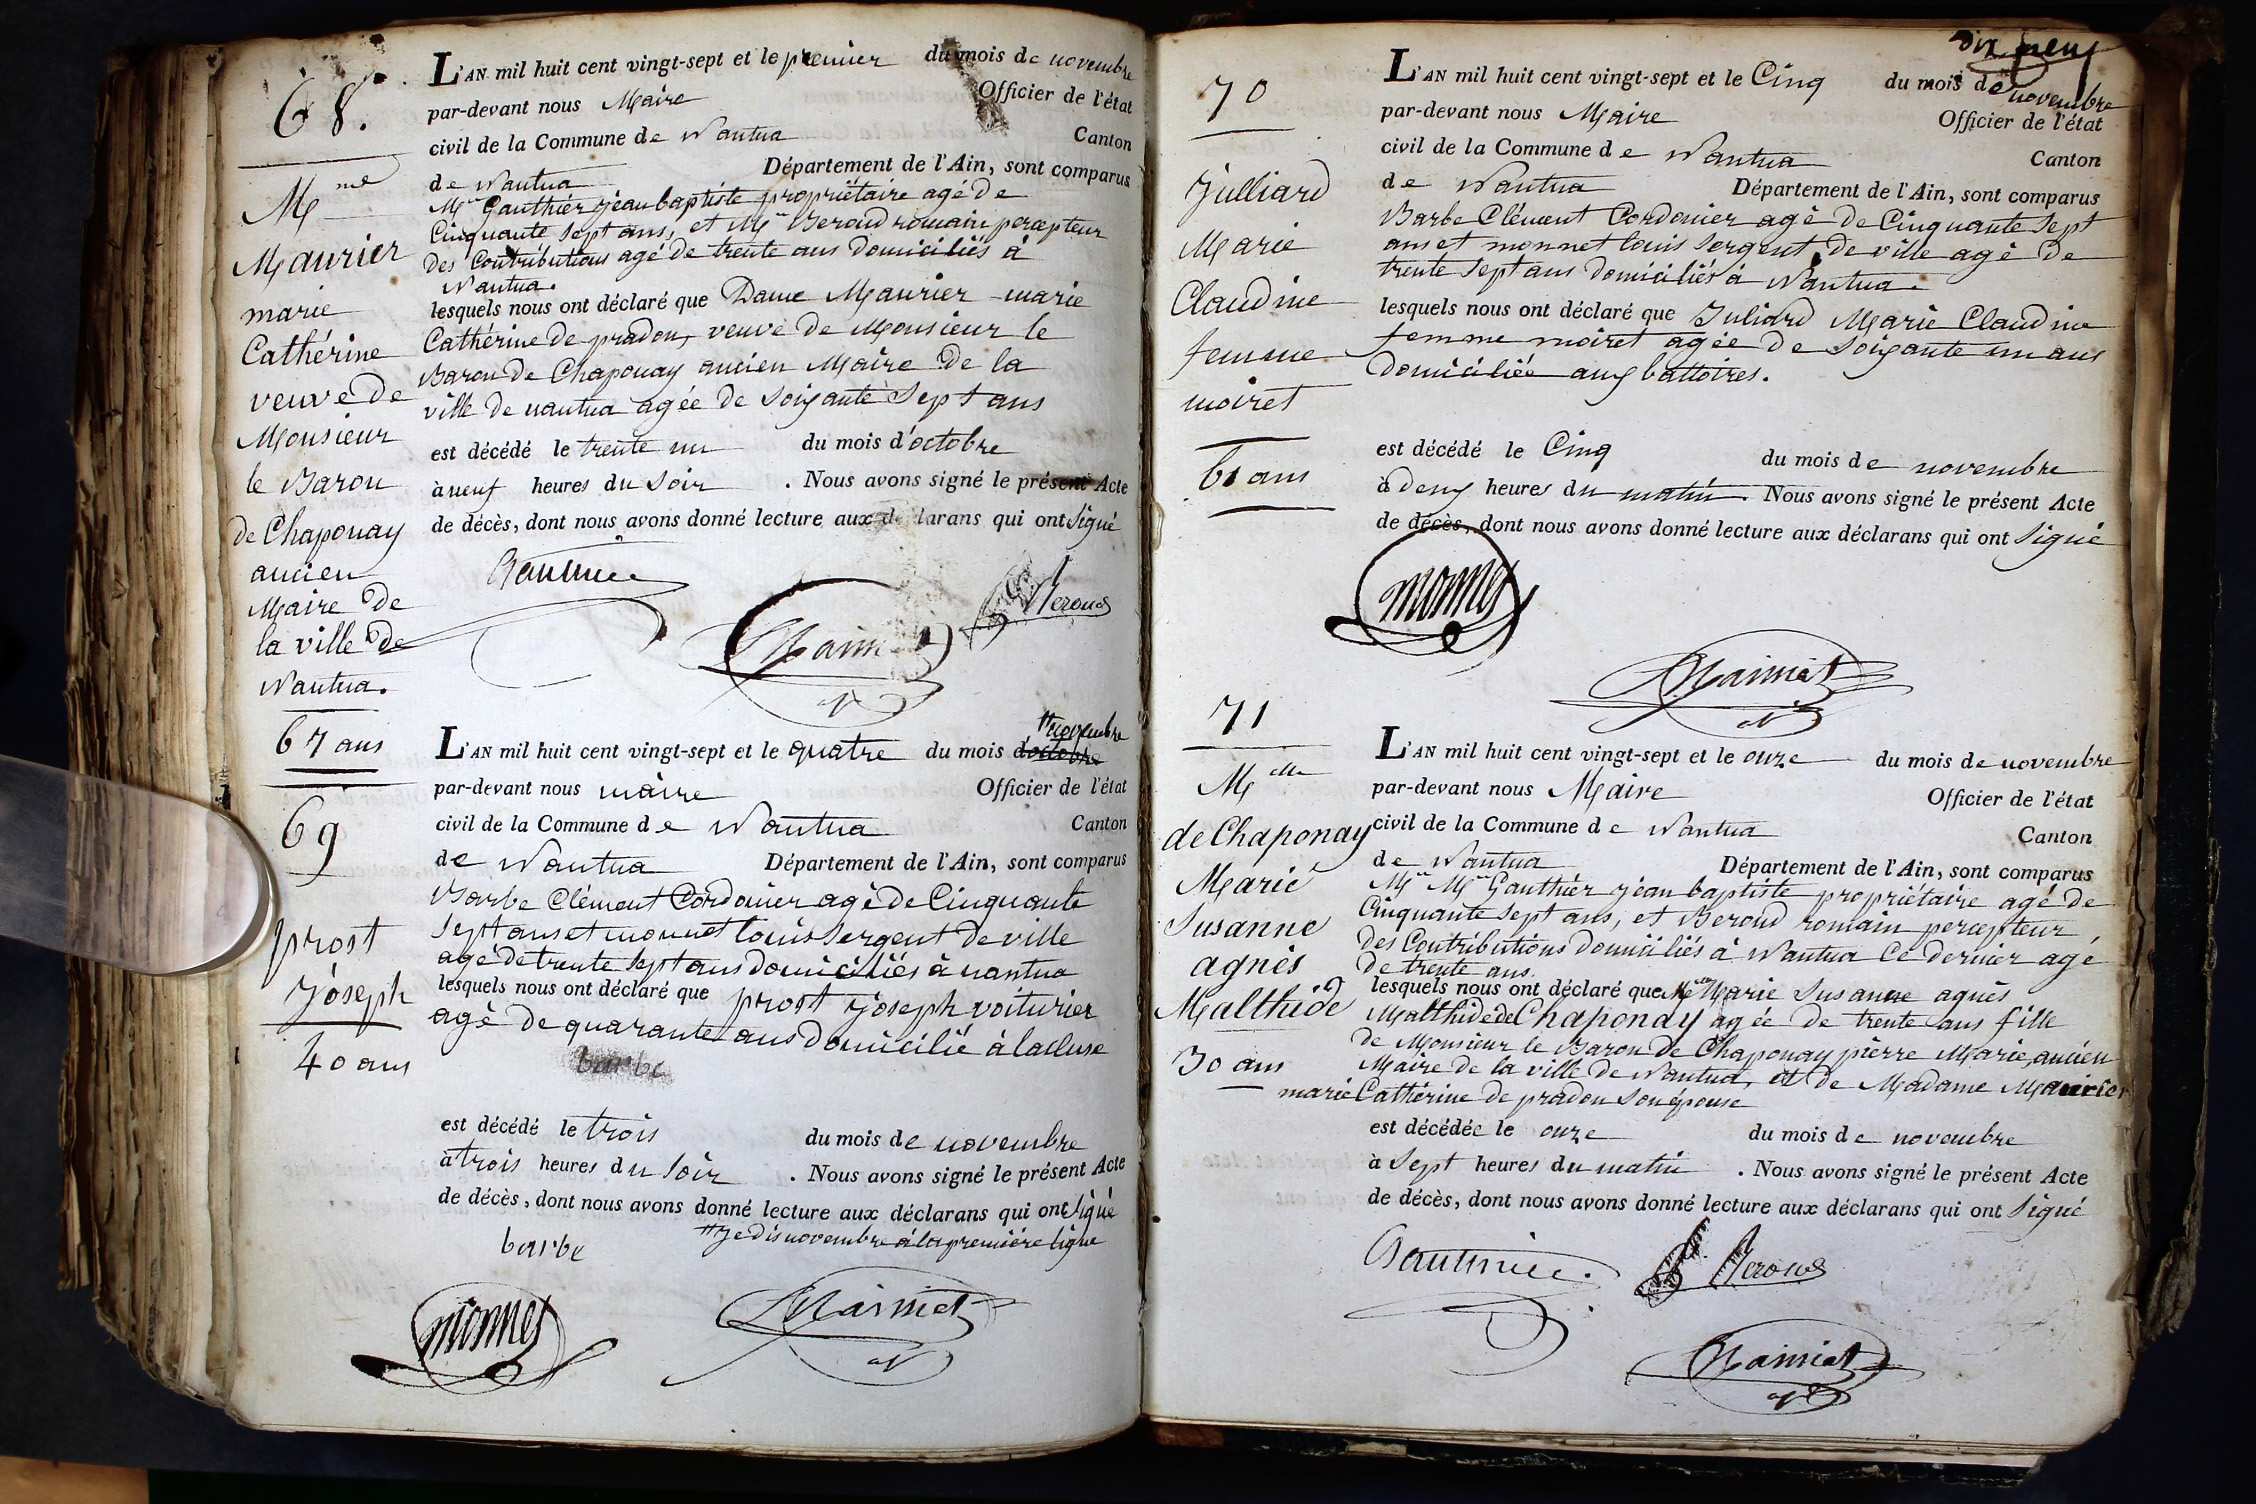 68.
Mme
Maurier
marie
Cathérine
veuve de
Monsieur
le Baron
de Chaponay
ancien
Maire de
la ville de
Nantua.
67 ans
L'AN mil huit cent vingt-sept et le premier du mois de novembre
par-devant nous Maire Officier de l'état
civil de la Commune de Nantua Canton
de Nantua Département de l'Ain, sont comparus
Mrs Gauthier jean baptiste propriétaire agé de
Cinquante sept ans, et Mr Beroud romain percepteur
des Contributions agé de trente ans domiciliés à
Nantua.
lesquels nous ont déclaré que Dame Maurier marie
Cathérine de pradon, veuve de Monsieur le
Baron de Chaponay ancien Maire de la
ville de nantua agée de soixante sept ans
est décédé le trente un du mois d'octobre
à neuf heures du soir . Nous avons signé le présent Acte
de décès, dont nous avons donné lecture aux déclarans qui ont signé
Beroud
69
prost
joseph
40 ans
L'AN mil huit cent vingt-sept et le quatre du mois d'octobre
novembre
par-devant nous maire Officier de l'état
civil de la Commune de Nantua Canton
de Nantua Département de l'Ain, sont comparus
Barbe Clément Cordonier agé de Cinquante
sept ans et monnet louis sergent de ville
agé de trente sept ans domiciliés à nantua
lesquels nous ont déclaré que prost joseph voiturier
agé de quarante ans domicilié à lacluse
barbe
est décédé le trois du mois de novembre
à trois heures du soir . Nous avons signé le présent Acte
de décès, dont nous avons donné lecture aux déclarans qui ont signé
je dis novembre à la première ligne
barbe
monnet
dix neuf
70
Julliard
Marie
Claudine
femme
moiret
61 ans
L'AN mil huit cent vingt-sept et le Cinq du mois de novembre
par-devant nous Maire Officier de l'état
civil de la Commune de Nantua Canton
de Nantua Département de l'Ain, sont comparus
Barbe Clément Cordonier agé de Cinquante sept
ans et monnet louis sergent de ville agé de
trente sept ans domiciliés à Nantua.
lesquels nous ont déclaré que Juliard Marie Claudine
femme moiret agée de soixante un ans
domiciliée aux battoires.
est décédé le Cinq du mois de novembre
à deux heures du matin. Nous avons signé le présent Acte
de décès, dont nous avons donné lecture aux déclarans qui ont signé
monnet
71
Melle
de Chaponay
Marie
Susanne
agnès
Malthide
30 ans
L'AN mil huit cent vingt-sept et le onze du mois de novembre
par-devant nous Maire Officier de l'état
civil de la Commune de Nantua Canton
de Nantua Département de l'Ain, sont comparus
Mrs Mrs Gauthier jean baptiste propriétaire agé de
Cinquante sept ans, et Beroud romain percepteur
des Contributions domiciliés à Nantua Ce dernier agé
de trente ans.
lesquels nous ont déclaré que Melle Marie Susanne agnès
Malthide de Chaponay agée de trente ans fille
de Monsieur le Baron de Chaponay pierre Marie, ancien
Maire de la ville de Nantua, et de Madame Maurier
marie Cathérine de pradon son épouse
est décédée le onze du mois de novembre
à sept heures du matin . Nous avons signé le présent Acte
de décès, dont nous avons donné lecture aux déclarans qui ont signé
Beroud